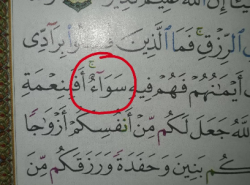 ٱلرِّزْقِ ۚ فَمَا ٱلَّذِينَ فُضِّلُوا۟ بِرَآدِّى
أَيْمَٰنُهُمْ فَهُمْ فِيهِ سَوَآءٌ ۚ أَفَبِنِعْمَةِ
للَّهُ جَعَلَ لَكُم مِّنْ أَنفُسِكُمْ أَزْوَٰجًا
كُم بَنِينَ وَحَفَدَةً وَرَزَقَكُم مِّنَ